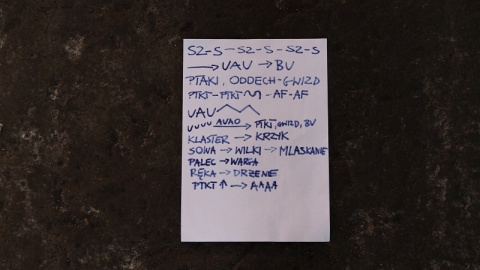 SZ-S-SZ-S-SZ-S
→ UAU → BU
PTAKI, ODDECH-GWIZD
PTKT-PTKT -AF-AF
UAU
UUUU AUAO → PTKT, GWIZD, BU
KLASTER → KRZYK
SOWA → WILKI → MLASKANIE
PALEC → WARGA
RĘKA → DRŻENIE
PTKT ↑ → AAAA